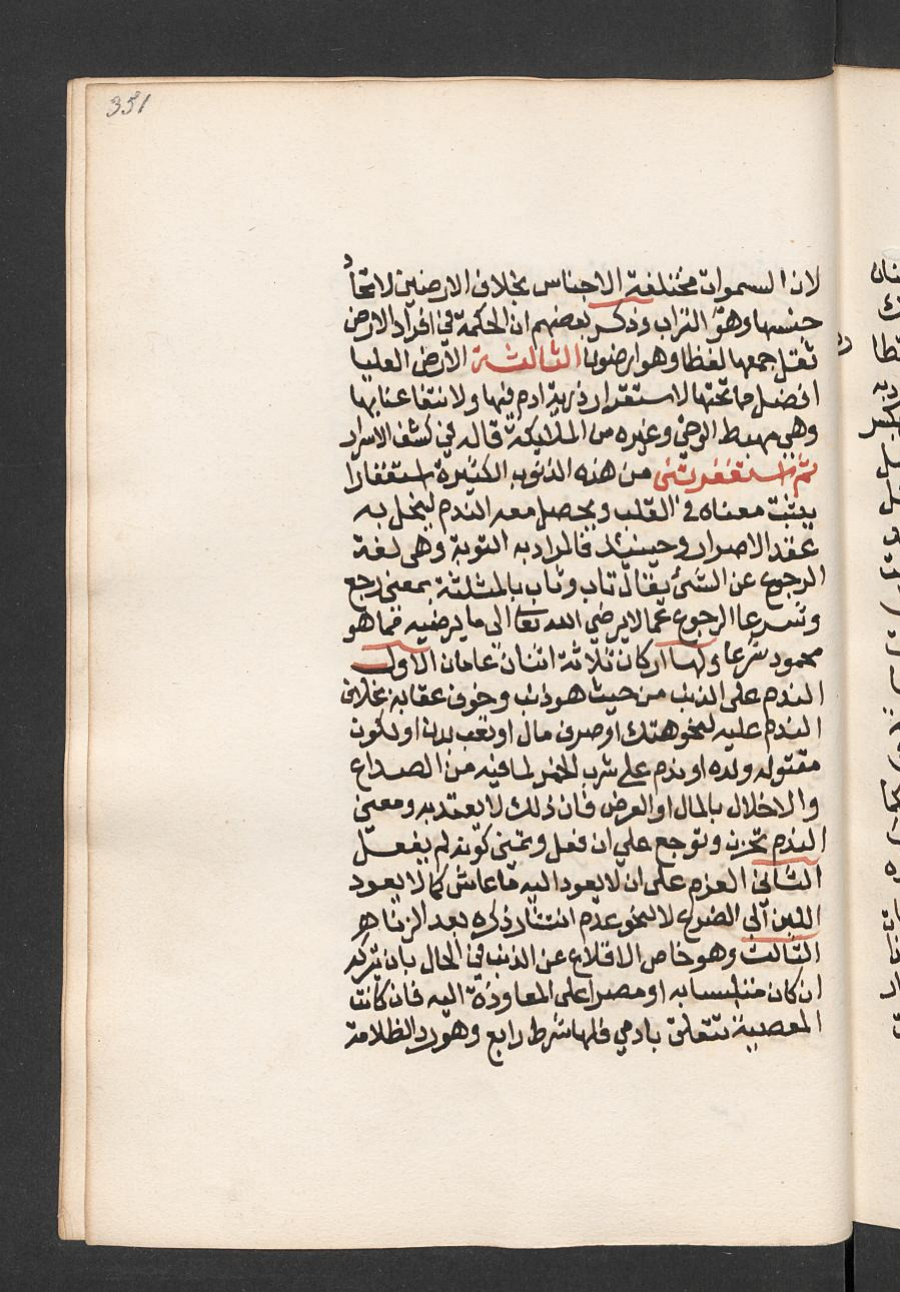 351
لان السموات مختلفة الاجناس بخلاف الارضين لاتحاد
جنسها وهو التراب وذكر بعضهم ان الحكمة في افراد الارض
ثقل جمعها لفظا وهو ارضون الثالثة الارض العليا
افضل مما تحتها لاستقرار ذرية ادم فيها ولانتفاعنا بها
وهي مهبط الوحي وغيره من الملايكة قاله في كشف الاسرار
ثم استغفرتني من هذه الذنوب الكثيرة استغفارا
يثبت معناه في القلب ويحصل معه الندم لينحل به
عقد الاصرار وحينئذ فالمراد به التوبة وهي لغة
الرجوع عن الشئ يقال تاب وثاب بالمثلثة بمعنى رجع
وشرعا الرجوع عما لا يرضي الله تعالى الي ما يرضيه مما هو
محمود شرعا ولها اركان ثلاثة اثنان عامان الاول
الندم على الذنب من حيث هو ذنب وخوف عقابه بخلاف
الندم عليه لنحو هتك او صرف مال او تعب بدن او لكون
مقتوله ولده او ندم على شرب الخمر لما فيه من الصداع
والاخلال بالمال او العرض فان ذلك لا يعتد به ومعنى
الندم تحزن وتوجع على ان فعل وتمنى كونه لم يفعل
الثاني العزم على ان لا يعود اليه ما عاش كما لا يعود
اللبن الي الضرع لا لنحو عدم انتشار ذكره بعد الزنا
الثالث وهو خاص الاقلاع عن الذنب في الحال بان يتركه
ان كان متلبسا به او مصرا على المعاودة اليه فان كانت
المعصية تتعلق بادمي فلها شرط رابع وهو رد الظلامة